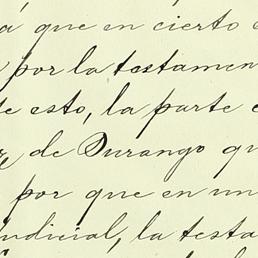 á que en cierto
por la testamen
de esto, la parte
de Durango qu
por que en un
judicial, la testa